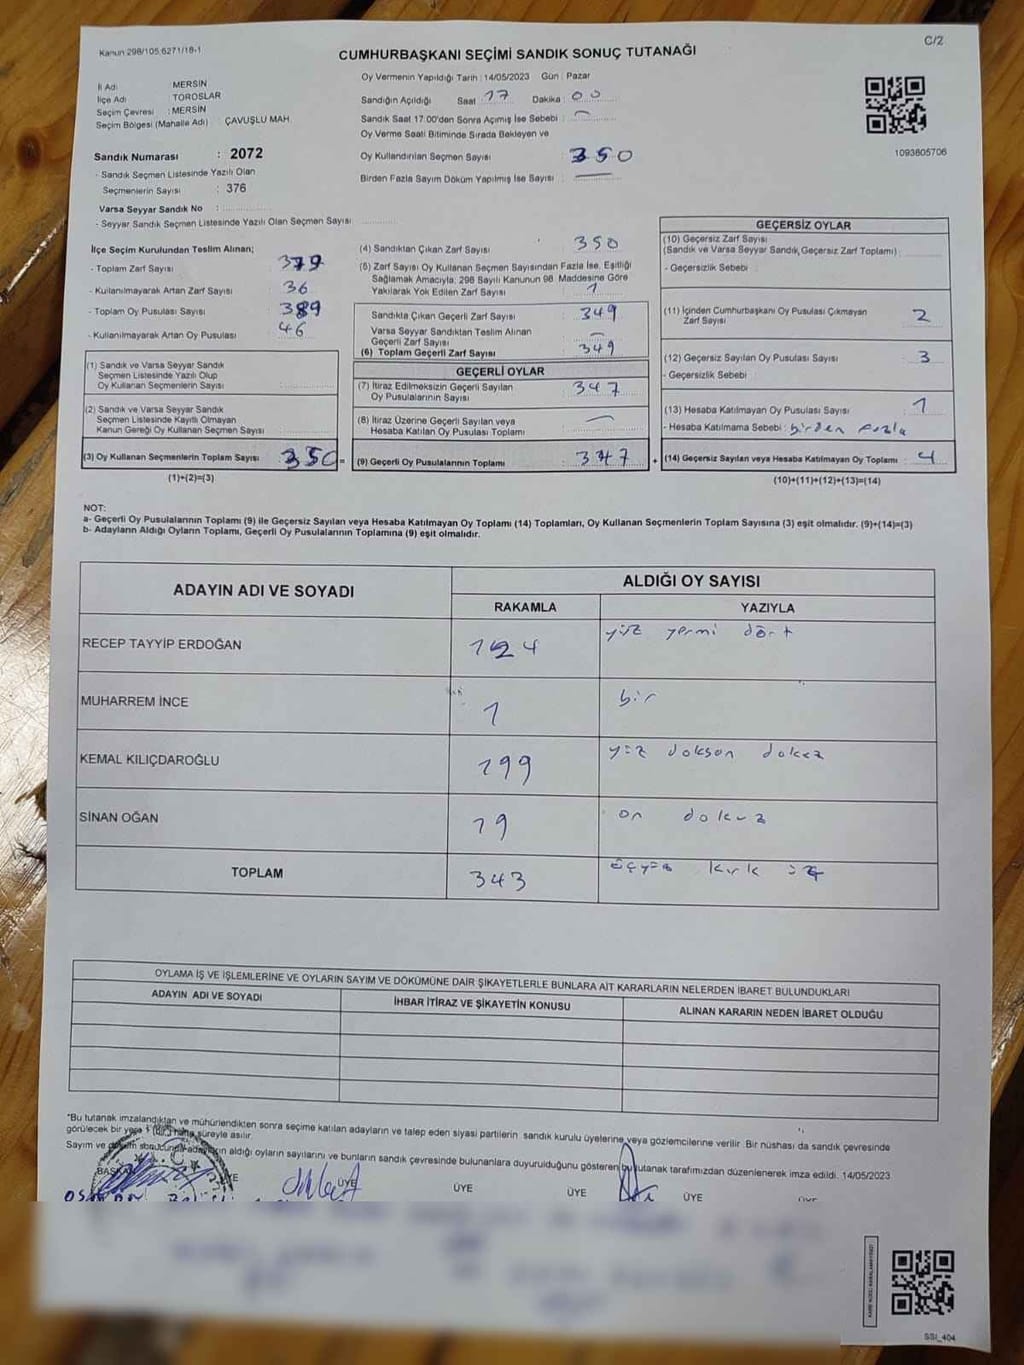 Kanun 298/105.6271/18-1
C/2
CUMHURBAŞKANI SEÇİMİ SANDIK SONUÇ TUTANAĞI
İl Adı : MERSİN
İlçe Adı : TOROSLAR
Seçim Çevresi : MERSİN
Seçim Bölgesi (Mahalle Adı) : ÇAVUŞLU MAH.
Sandık Numarası : 2072
- Sandık Seçmen Listesinde Yazılı Olan
Seçmenlerin Sayısı : 376
Varsa Seyyar Sandık No :
- Seyyar Sandık Seçmen Listesinde Yazılı Olan Seçmen Sayısı:
Oy Vermenin Yapıldığı Tarih : 14/05/2023 Gün : Pazar
Sandığın Açıldığı Saat 17 Dakika : 00
Sandık Saat 17:00'den Sonra Açılmış İse Sebebi :
Oy Verme Saati Bitiminde Sırada Bekleyen ve
Oy Kullandırılan Seçmen Sayısı : 350
Birden Fazla Sayım Döküm Yapılmış İse Sayısı :
1093805706
İlçe Seçim Kurulundan Teslim Alınan;
- Toplam Zarf Sayısı : 379
- Kullanılmayarak Artan Zarf Sayısı : 36
- Toplam Oy Pusulası Sayısı : 389
- Kullanılmayarak Artan Oy Pusulası : 46
(1) Sandık ve Varsa Seyyar Sandık
Seçmen Listesinde Yazılı Olup
Oy Kullanan Seçmenlerin Sayısı :
(2) Sandık ve Varsa Seyyar Sandık
Seçmen Listesinde Kayıtlı Olmayan
Kanun Gereği Oy Kullanan Seçmen Sayısı :
(3) Oy Kullanan Seçmenlerin Toplam Sayısı : 350 =
(1)+(2)=(3)
(4) Sandıktan Çıkan Zarf Sayısı : 350
(5) Zarf Sayısı Oy Kullanan Seçmen Sayısından Fazla İse, Eşitliği
Sağlamak Amacıyla, 298 Sayılı Kanunun 98. Maddesine Göre
Yakılarak Yok Edilen Zarf Sayısı : 1
Sandıkta Çıkan Geçerli Zarf Sayısı : 349
Varsa Seyyar Sandıktan Teslim Alınan
Geçerli Zarf Sayısı :
(6) Toplam Geçerli Zarf Sayısı : 349
GEÇERLİ OYLAR
(7) İtiraz Edilmeksizin Geçerli Sayılan
Oy Pusulalarının Sayısı : 347
(8) İtiraz Üzerine Geçerli Sayılan veya
Hesaba Katılan Oy Pusulası Toplamı :
(9) Geçerli Oy Pusulalarının Toplamı : 347 +
GEÇERSİZ OYLAR
(10) Geçersiz Zarf Sayısı
(Sandık ve Varsa Seyyar Sandık,Geçersiz Zarf Toplamı) :
- Geçersizlik Sebebi :
(11) İçinden Cumhurbaşkanı Oy Pusulası Çıkmayan
Zarf Sayısı : 2
(12) Geçersiz Sayılan Oy Pusulası Sayısı : 3
- Geçersizlik Sebebi :
(13) Hesaba Katılmayan Oy Pusulası Sayısı : 1
- Hesaba Katılmama Sebebi : birden fazla
(14) Geçersiz Sayılan veya Hesaba Katılmayan Oy Toplamı : 4
(10)+(11)+(12)+(13)=(14)
NOT:
a- Geçerli Oy Pusulalarının Toplamı (9) ile Geçersiz Sayılan veya Hesaba Katılmayan Oy Toplamı (14) Toplamları, Oy Kullanan Seçmenlerin Toplam Sayısına (3) eşit olmalıdır. (9)+(14)=(3)
b- Adayların Aldığı Oyların Toplamı, Geçerli Oy Pusulalarının Toplamına (9) eşit olmalıdır.
ADAYIN ADI VE SOYADI
ALDIĞI OY SAYISI
RAKAMLA YAZIYLA
RECEP TAYYİP ERDOĞAN 124 yüz yermi dört
MUHARREM İNCE 1 bir
KEMAL KILIÇDAROĞLU 199 yüz doksan dokuz
SİNAN OĞAN 19 on dokuz
TOPLAM 343 üçyüz kırk üç
OYLAMA İŞ VE İŞLEMLERİNE VE OYLARIN SAYIM VE DÖKÜMÜNE DAİR ŞİKAYETLERLE BUNLARA AİT KARARLARIN NELERDEN İBARET BULUNDUKLARI
ADAYIN ADI VE SOYADI İHBAR İTİRAZ VE ŞİKAYETİN KONUSU ALINAN KARARIN NEDEN İBARET OLDUĞU
*Bu tutanak imzalandıktan ve mühürlendikten sonra seçime katılan adayların ve talep eden siyasi partilerin sandık kurulu üyelerine veya gözlemcilerine verilir. Bir nüshası da sandık çevresinde
görülecek bir yere süreyle asılır.
Sayım ve aldığı oyların sayılarını ve bunların sandık çevresinde bulunanlara duyurulduğunu gösteren bu tutanak tarafımızdan düzenlenerek imza edildi. 14/05/2023
BAŞKAN ÜYE ÜYE ÜYE ÜYE ÜYE
SSI_404